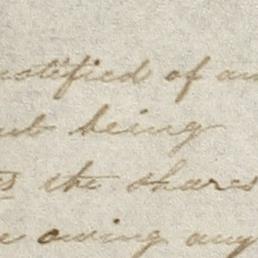 notified of an
being
the shares
owing any